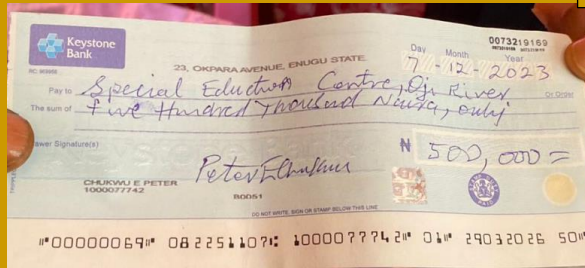 Keystone
Bank
0073219169
23, OKPARA AVENUE, ENUGU STATE
Day Month Year
7-12-2023
Pay to Special Eduction Centre, Oji River
Or Order
The sum of five Hundred Thousand Naira, only
awer Signature(s)
₦ 500,000=
CHUKWU E PETER
1000077742
B0051
DO NOT WRITE, SIGN OR STAMP BELOW THIS LINE
⑈00000069⑈ 082251107⑆ 1000077742⑈ 01⑈ 29032026 50⑈